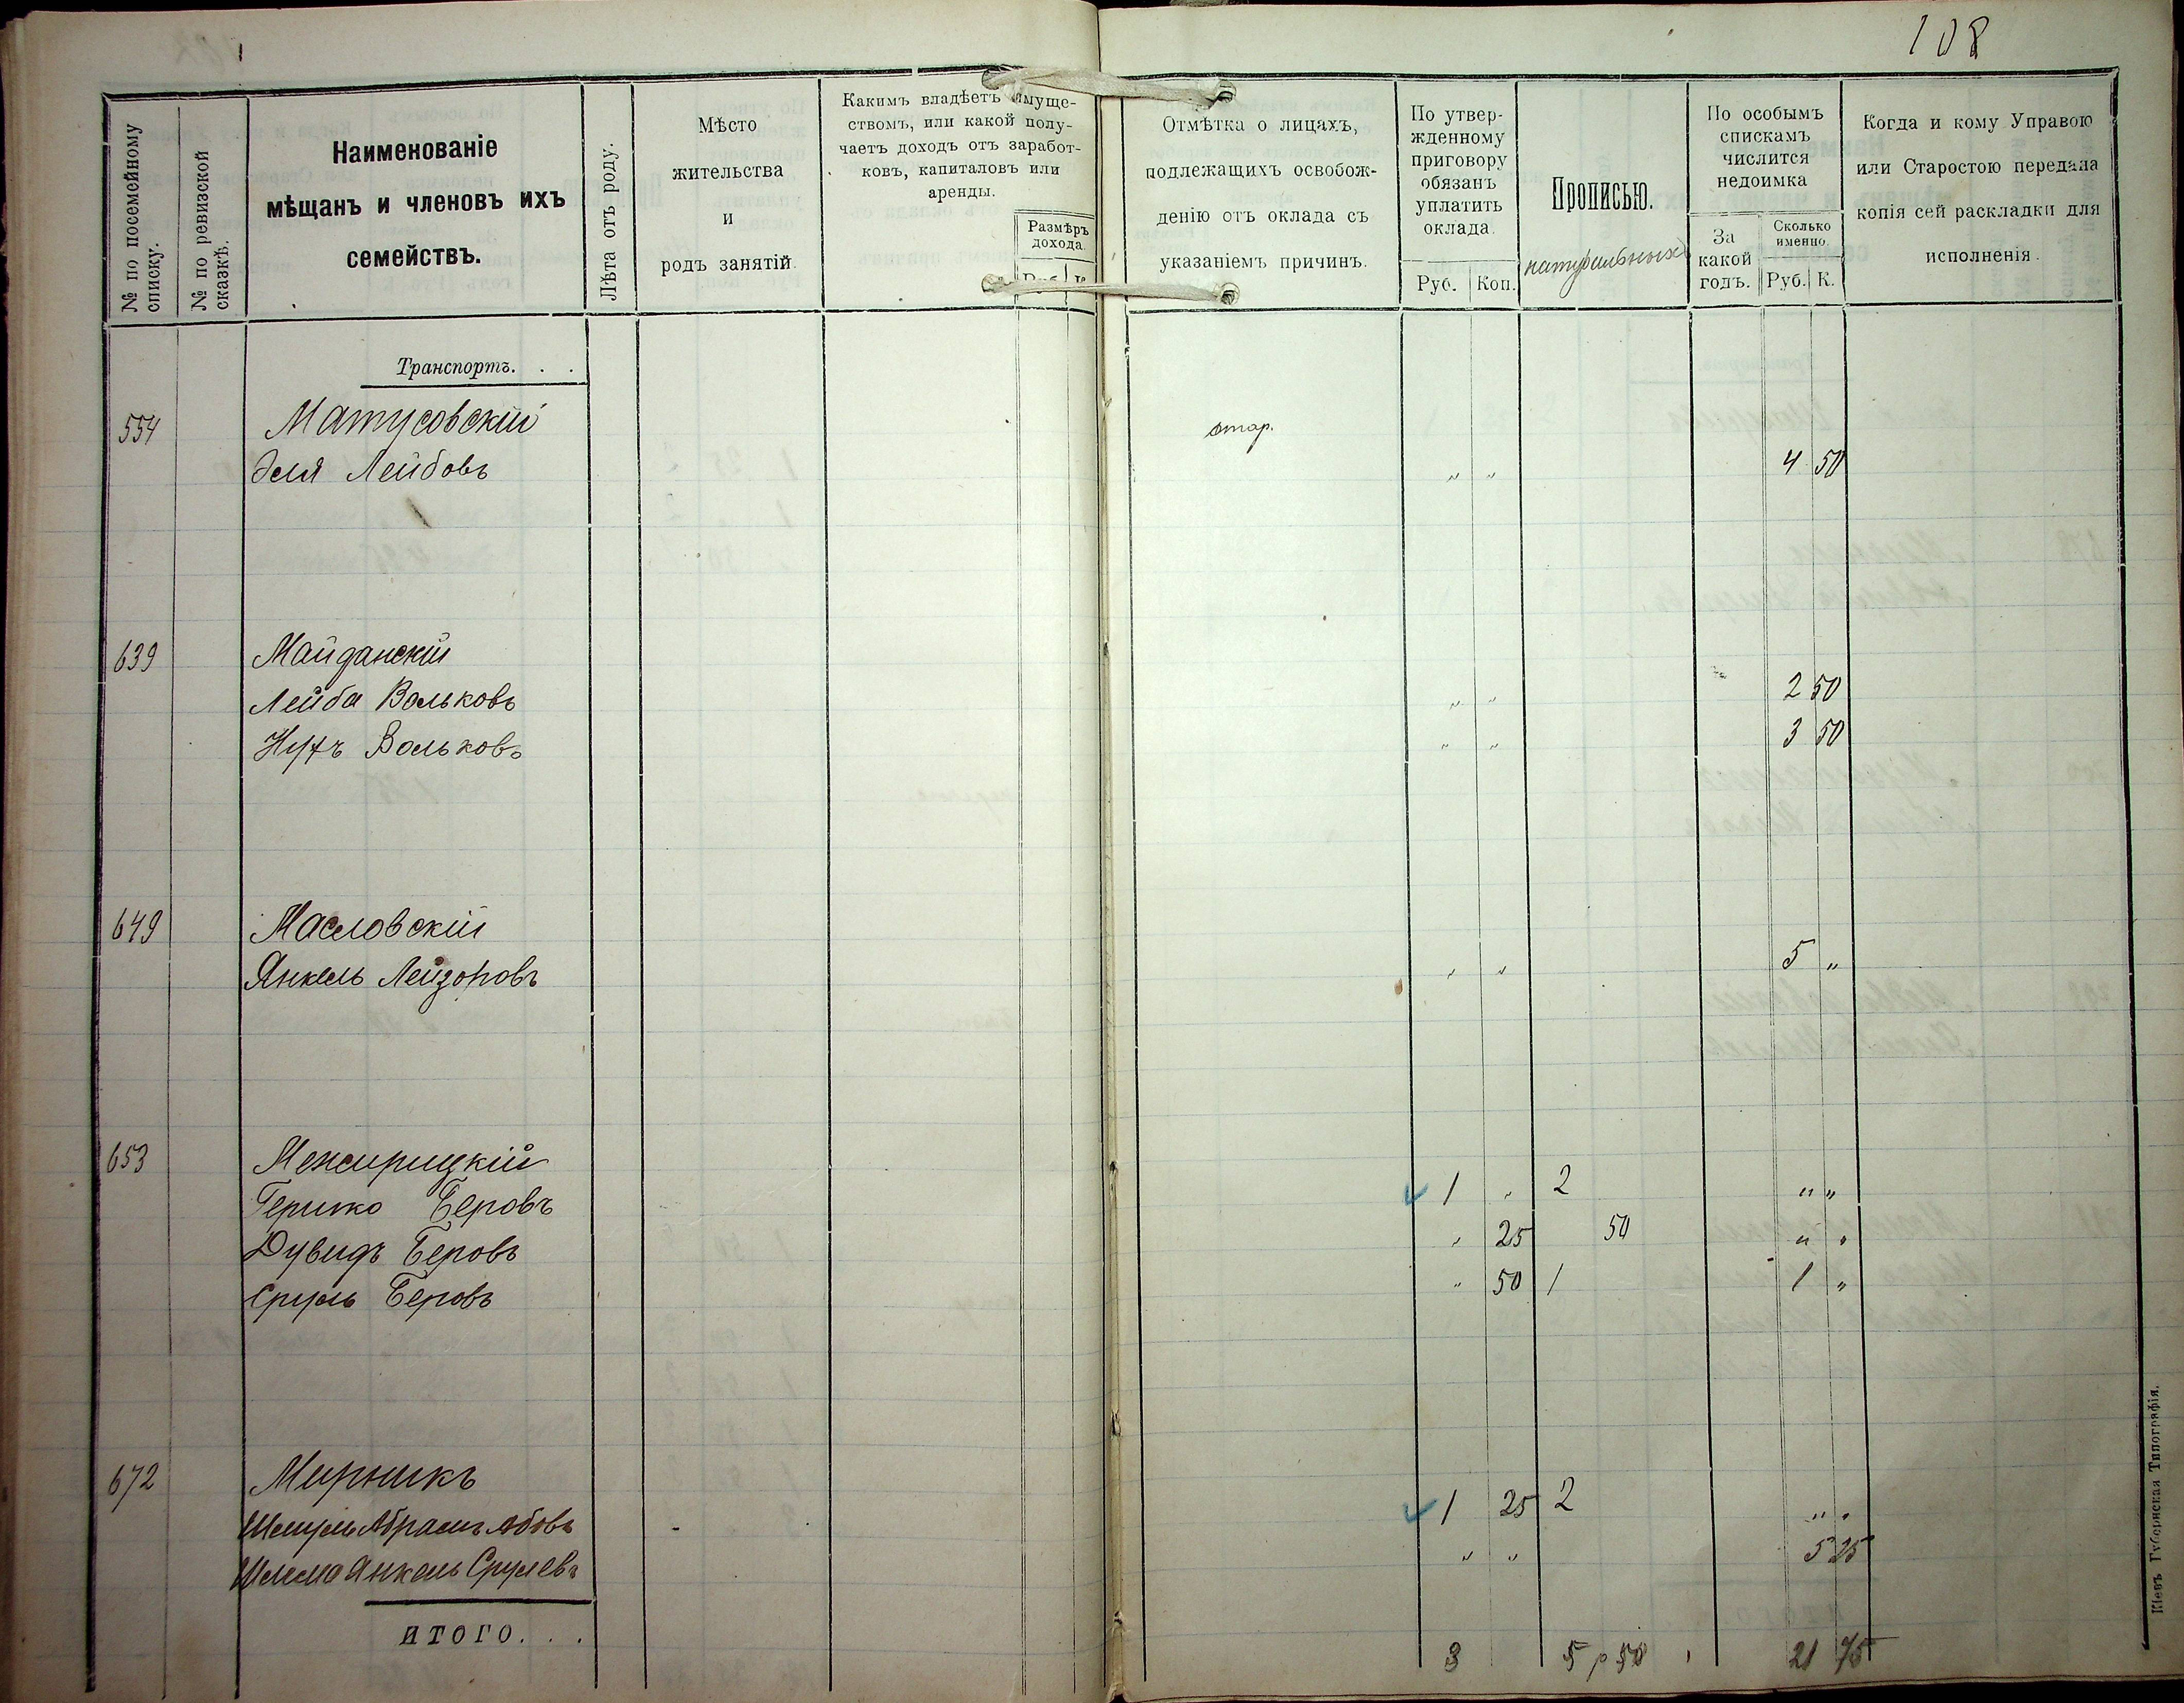 108
№ по посемейному списку.
№ по ревизской сказкѣ.
Наименованіе
мѣщанъ и членовъ ихъ
семействъ.
Лѣта отъ роду.
Мѣсто
жительства
и
родъ занятій.
Какимъ владѣетъ имуще-
ствомъ, или какой полу-
чаетъ доходъ отъ заработ-
ковъ, капиталовъ или
аренды.
Размѣръ
дохода.
Руб. К.
Отмѣтка о лицахъ,
подлежащихъ освобож-
денію отъ оклада съ
указаніемъ причинъ.
По утвер-
жденному
приговору
обязанъ
уплатить
оклада.
Руб. Коп.
Прописью.
натуральныхъ
По особымъ
спискамъ
числится
недоимка
За
какой
годъ.
Сколько
именно.
Руб. К.
Когда и кому Управою
или Старостою передана
копія сей раскладки для
исполненія.
Транспортъ. . .
554 Матусовскій стар.
Эля Лейбовъ " " 4 50
639 Майданскій
Лейба Вольковъ " " 2 50
Нухъ Вольковъ " " 3 50
649 Масловскій
Янкель Лейзоровъ " " 5 "
653 Межирицкій
Гершко Беровъ 1 " 2 " "
Дувидъ Беровъ " 25 50 " "
Сруль Беровъ " 50 1 1 "
672 Мирникъ
Шмуль Абрамъ Абовъ 1 25 2 " "
Шлема Янкель Срулевъ " " 5 25
ИТОГО. . . 3 5 р 50 21 75
Кіевъ Губернская Типографія.